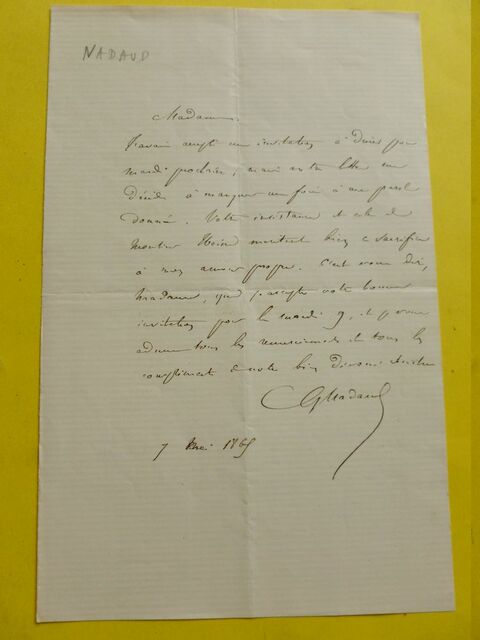 NADAUD
Madame,
J'avais accepté une invitation à dîner pour
mardi prochain, mais votre lettre me
décide à manquer une fois à ma parole
donnée. Votre insistance et celle de
Monsieur méritent bien ce sacrifice
à mon amour propre. C'est vous dire,
Madame, que j'accepte votre bonne
invitation pour le mardi 9, et je vous
adresse tous les remerciements et tous les
compliments de votre bien dévoué serviteur
GNadaud
7 Mai 1865